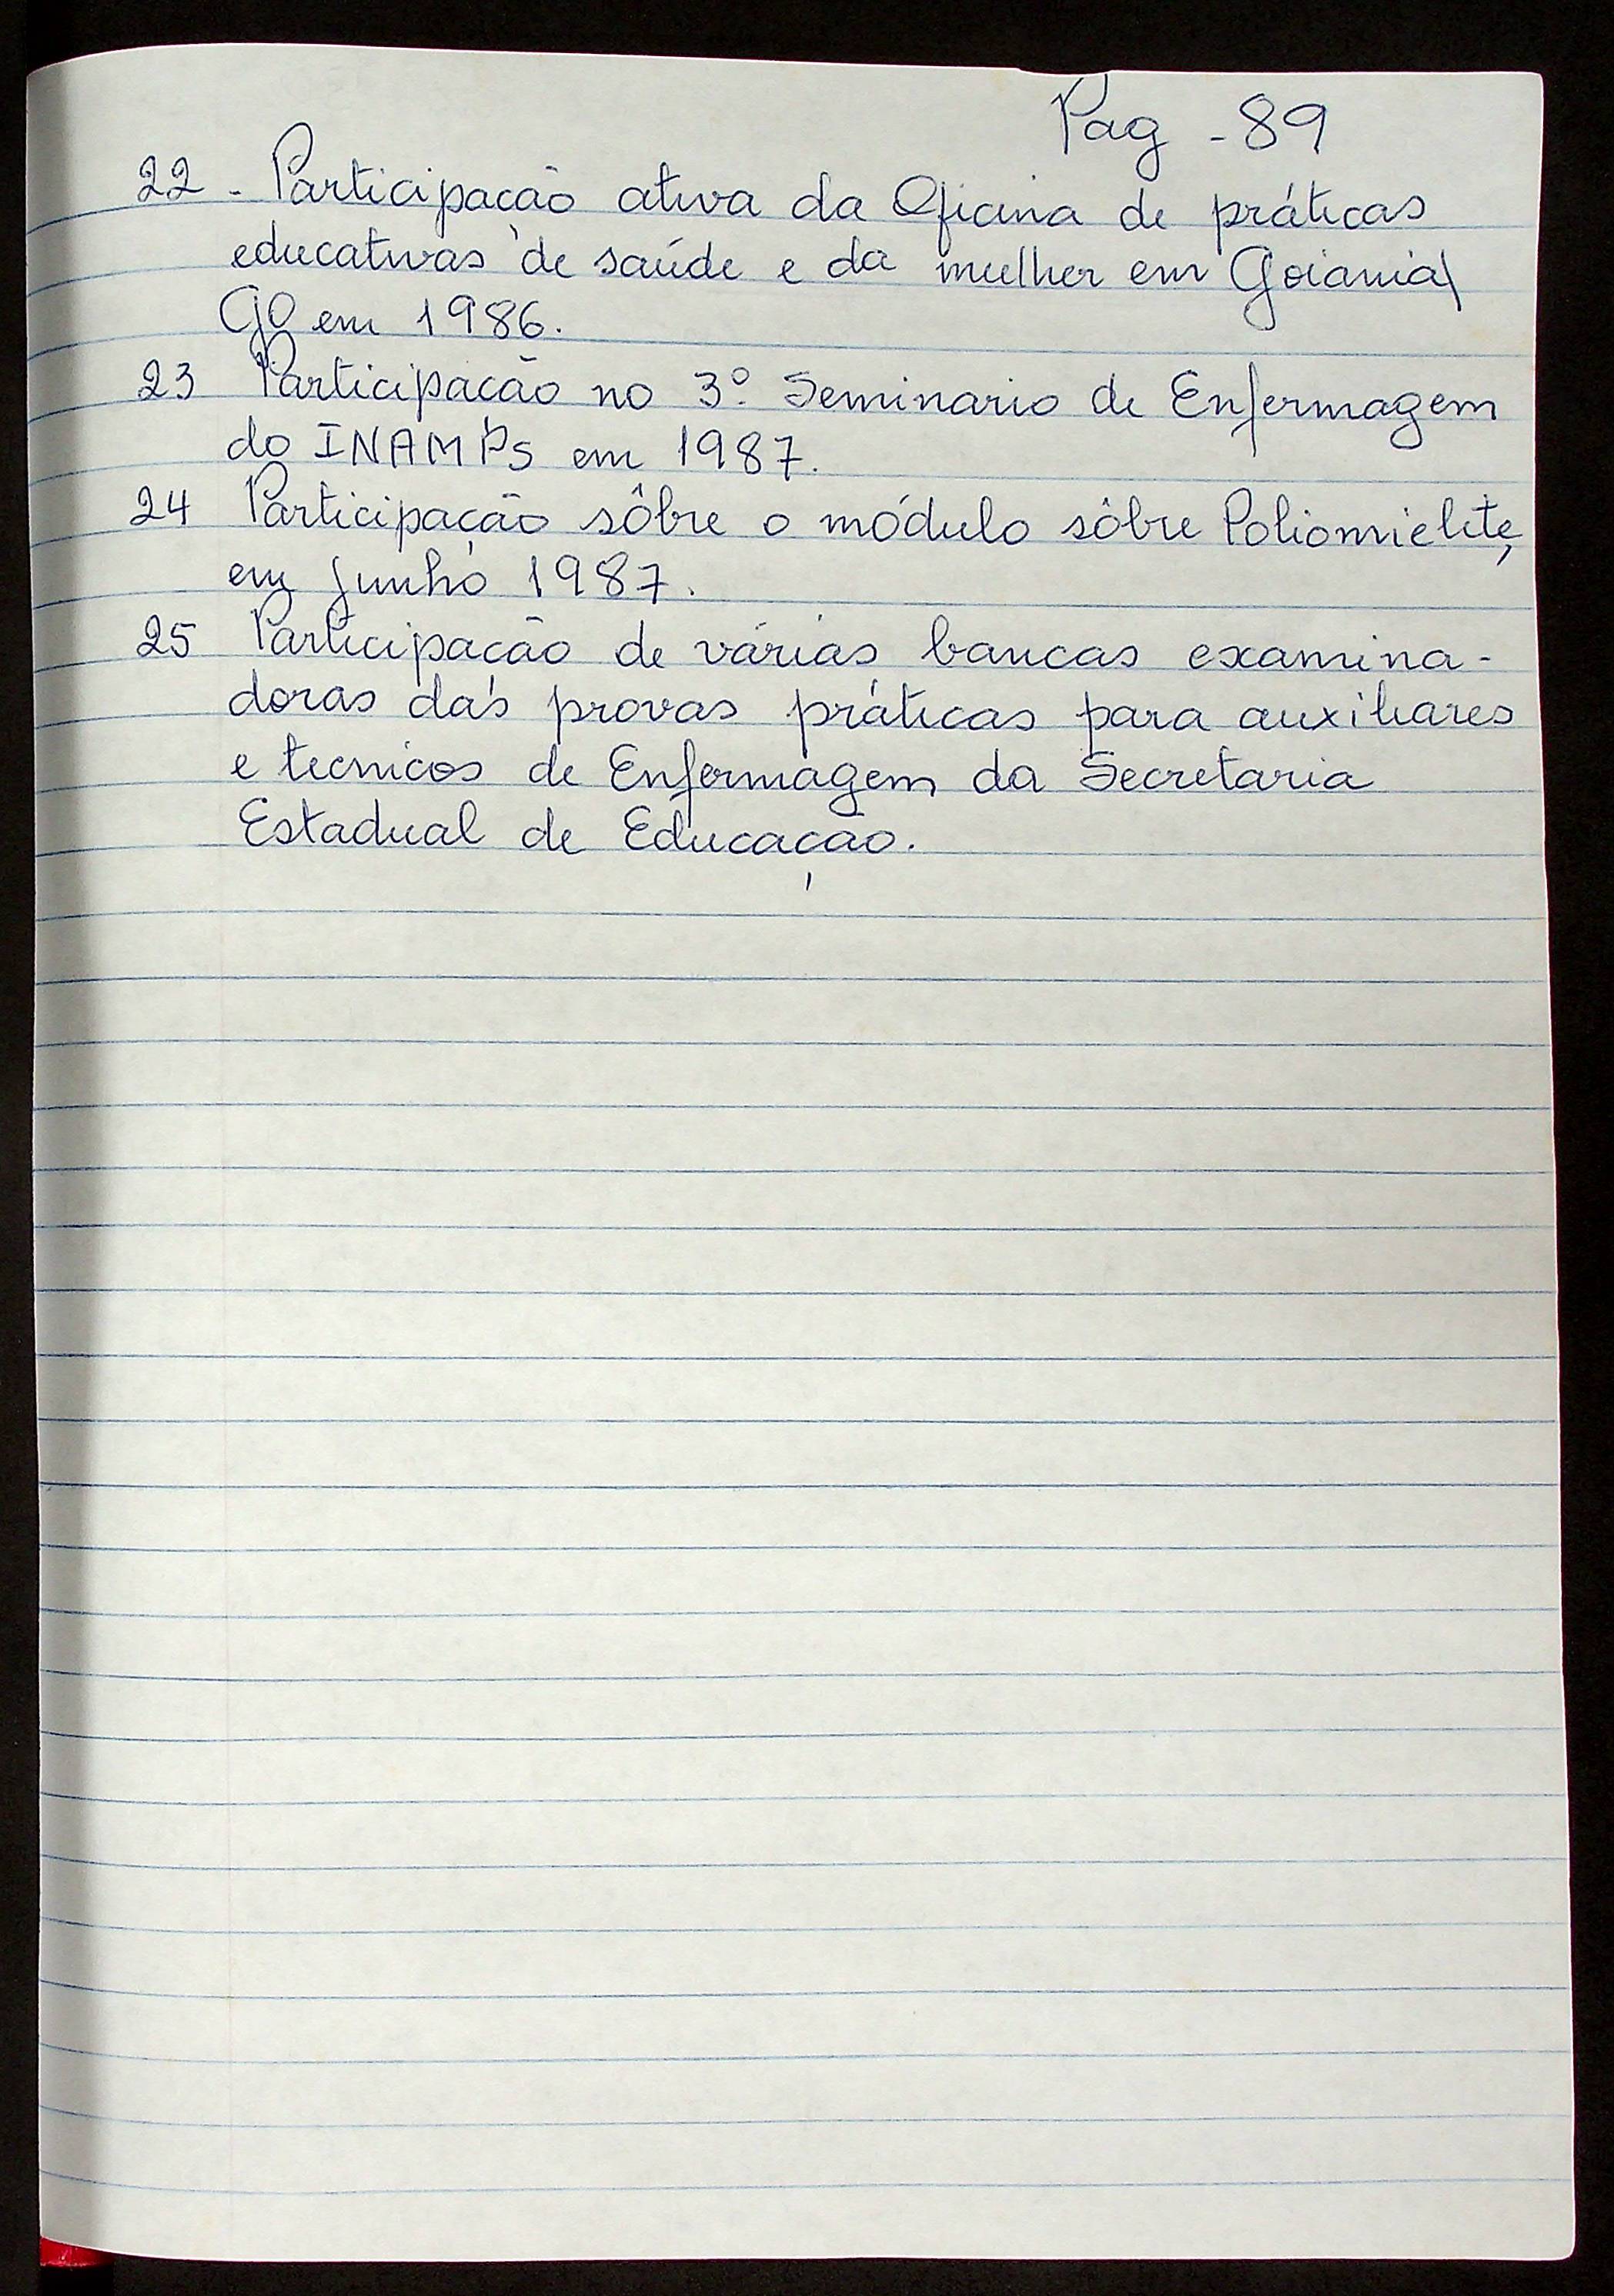 Pag - 89
22 - Participação ativa da Oficina de práticas
educativas de saúde e da mulher em Goiania\
GO em 1986.
23 Participação no 3º Seminario de Enfermagem
do INAMPS em 1987.
24 Participação sôbre o módulo sôbre Poliomielite,
em junho 1987.
25 Participação de várias bancas examina-
doras das provas práticas para auxiliares
e tecnicos de Enfermagem da Secretaria
Estadual de Educação.